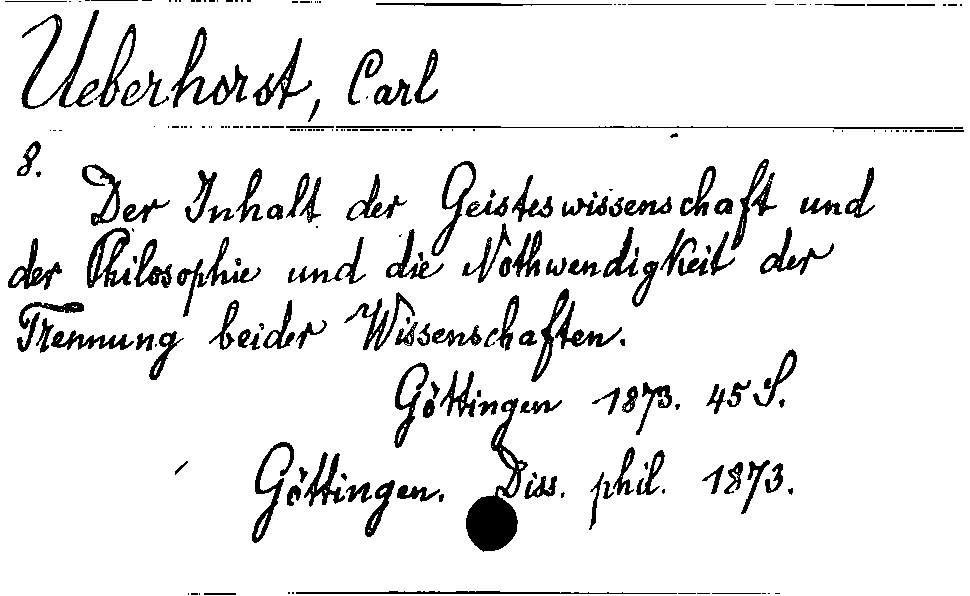 Ueberhorst, Carl
8.
Der Inhalt der Geisteswissenschaft und
der Philosophie und die Nothwendigkeit der
Trennung beider Wissenschaften.
Göttingen 1873. 45 S.
Göttingen. Diss. phil. 1873.